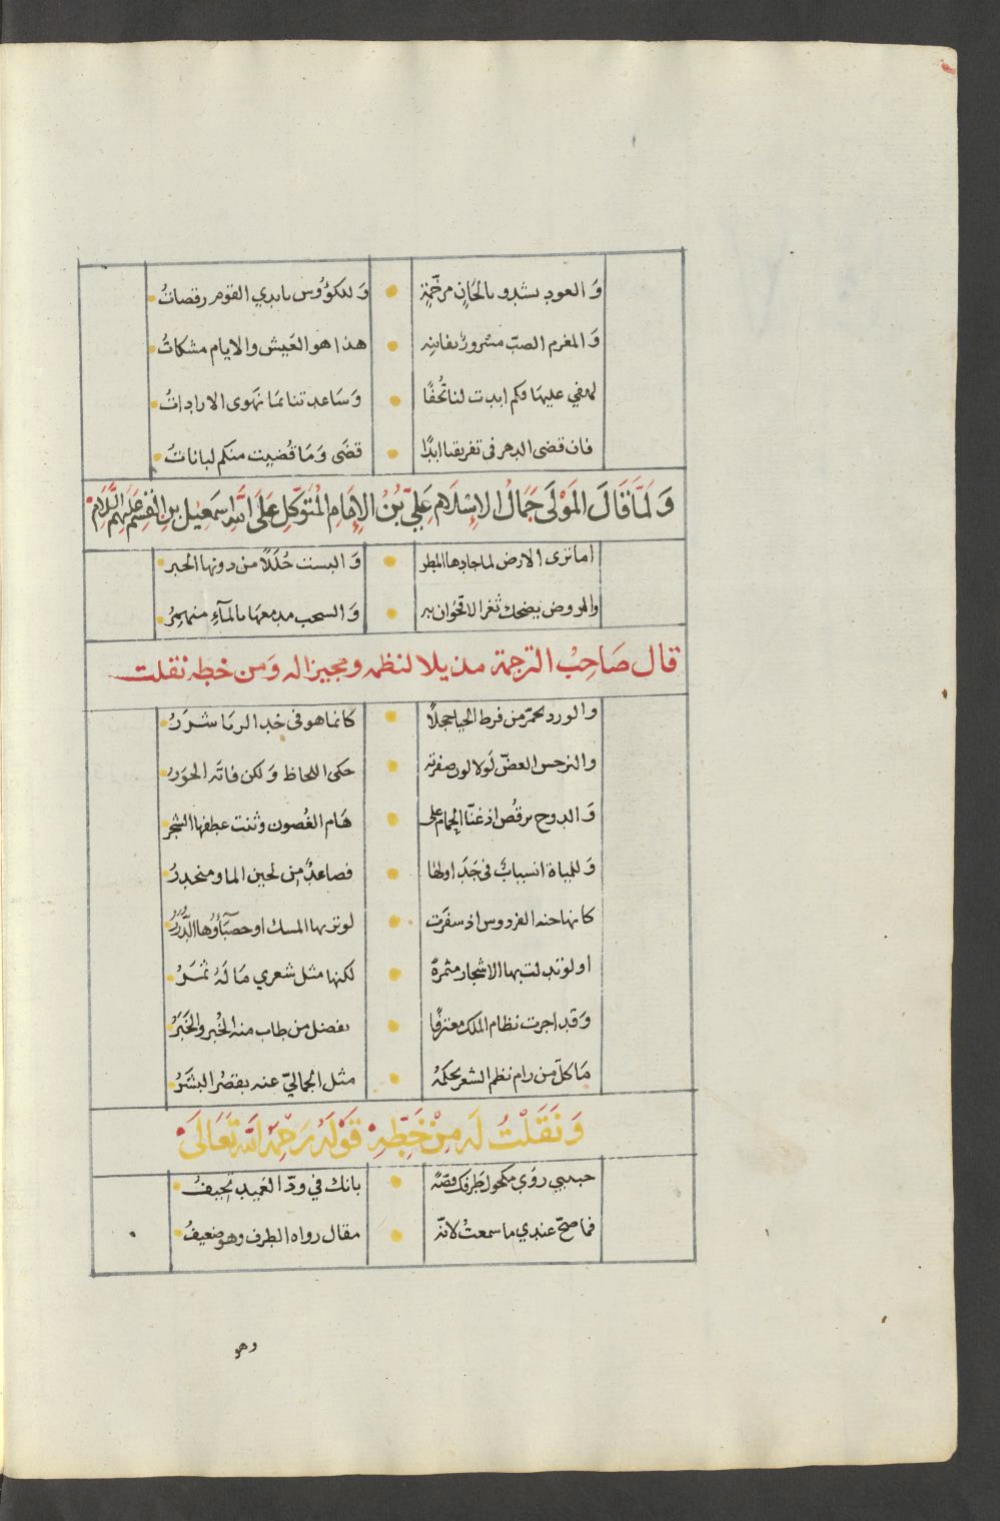 وَالعود يشدو بالحَانٍ مرخّمَةٍ وَللكؤوس بايدي القوم رقصاتُ
وَالمغرم الصبّ مسرورٌ بفاتنه هذا هو العَيش والايام مشكاتُ
لهفي عليهَا وكم ابدت لنا تُحفًا وَسَاعدتنا بمَا نهَوى الاراداتُ
فان قضى الدهر فى تفريقنا ابدًا قضَى وَمَا قُضيت منكم لباناتُ
وَلَمَّا قَالَ المَوْلَى جَمَالُ الاِسْلَامِ عَلِيُّ بْنُ الاِمَامِ المُتَوَكِّلِ عَلَى اللهِ اِسمَعِيل بنِ القٰسِم عَلَيهِم السَّلَام
اما ترى الارض لما جادها المطر وَالبست حُلَلاً من دونها الحبر
والروض يضحك ثغر الاقحوان به وَالسحب مدمعهَا بالمآءِ منهمِرُ
قال صَاحِبُ الترجمة مذيلا لنظمه ومجيزا له وَمن خطه نقلت
والورد يحمرّ من فرط الحيا خجلًا كانما هو فى خد الرمَا شررُ
والنرجس الغضّ لَولا لون صفرته حكى اللحاظ وَلكن فاتَه الحوَرُ
وَالدوح يرقُص اذ غنّا الحمام على هَام الغُصون وثنت عطفها الشجر
وَللمياة انسيابٌ فى جَدَاولها فصاعدٌ من لجين الما ومنحدرُ
كانها جنه الفردوس اذ سفرَت لو تربها المسك او حصبَآؤُها الدُّرَرُ
او لو تدلت بها الاشجار مثمرةً لكنها مثل شعري مَا لَهُ ثمَرُ
وَقد اجرت نظام الملك معترفًا بفضل من طاب منه الخُبر والخَبَرُ
مَا كلّ من رام نظم الشعر يحكمُهُ مثل الجماليّ عنه يقصُر البشَرُ
وَنَقَلْتُ لَه مِنْ خَطِّهِ قَوْلَهُ رَحِمَهُ اللهُ تَعَالَى
حبيبي روَى مكحول طرفك قصّةً بانك في ودّ العَميد تحِيفُ
فما صحّ عندي ما سمعتُ لانّه مقال رواه الطرف وهو ضعيفُ
وهو